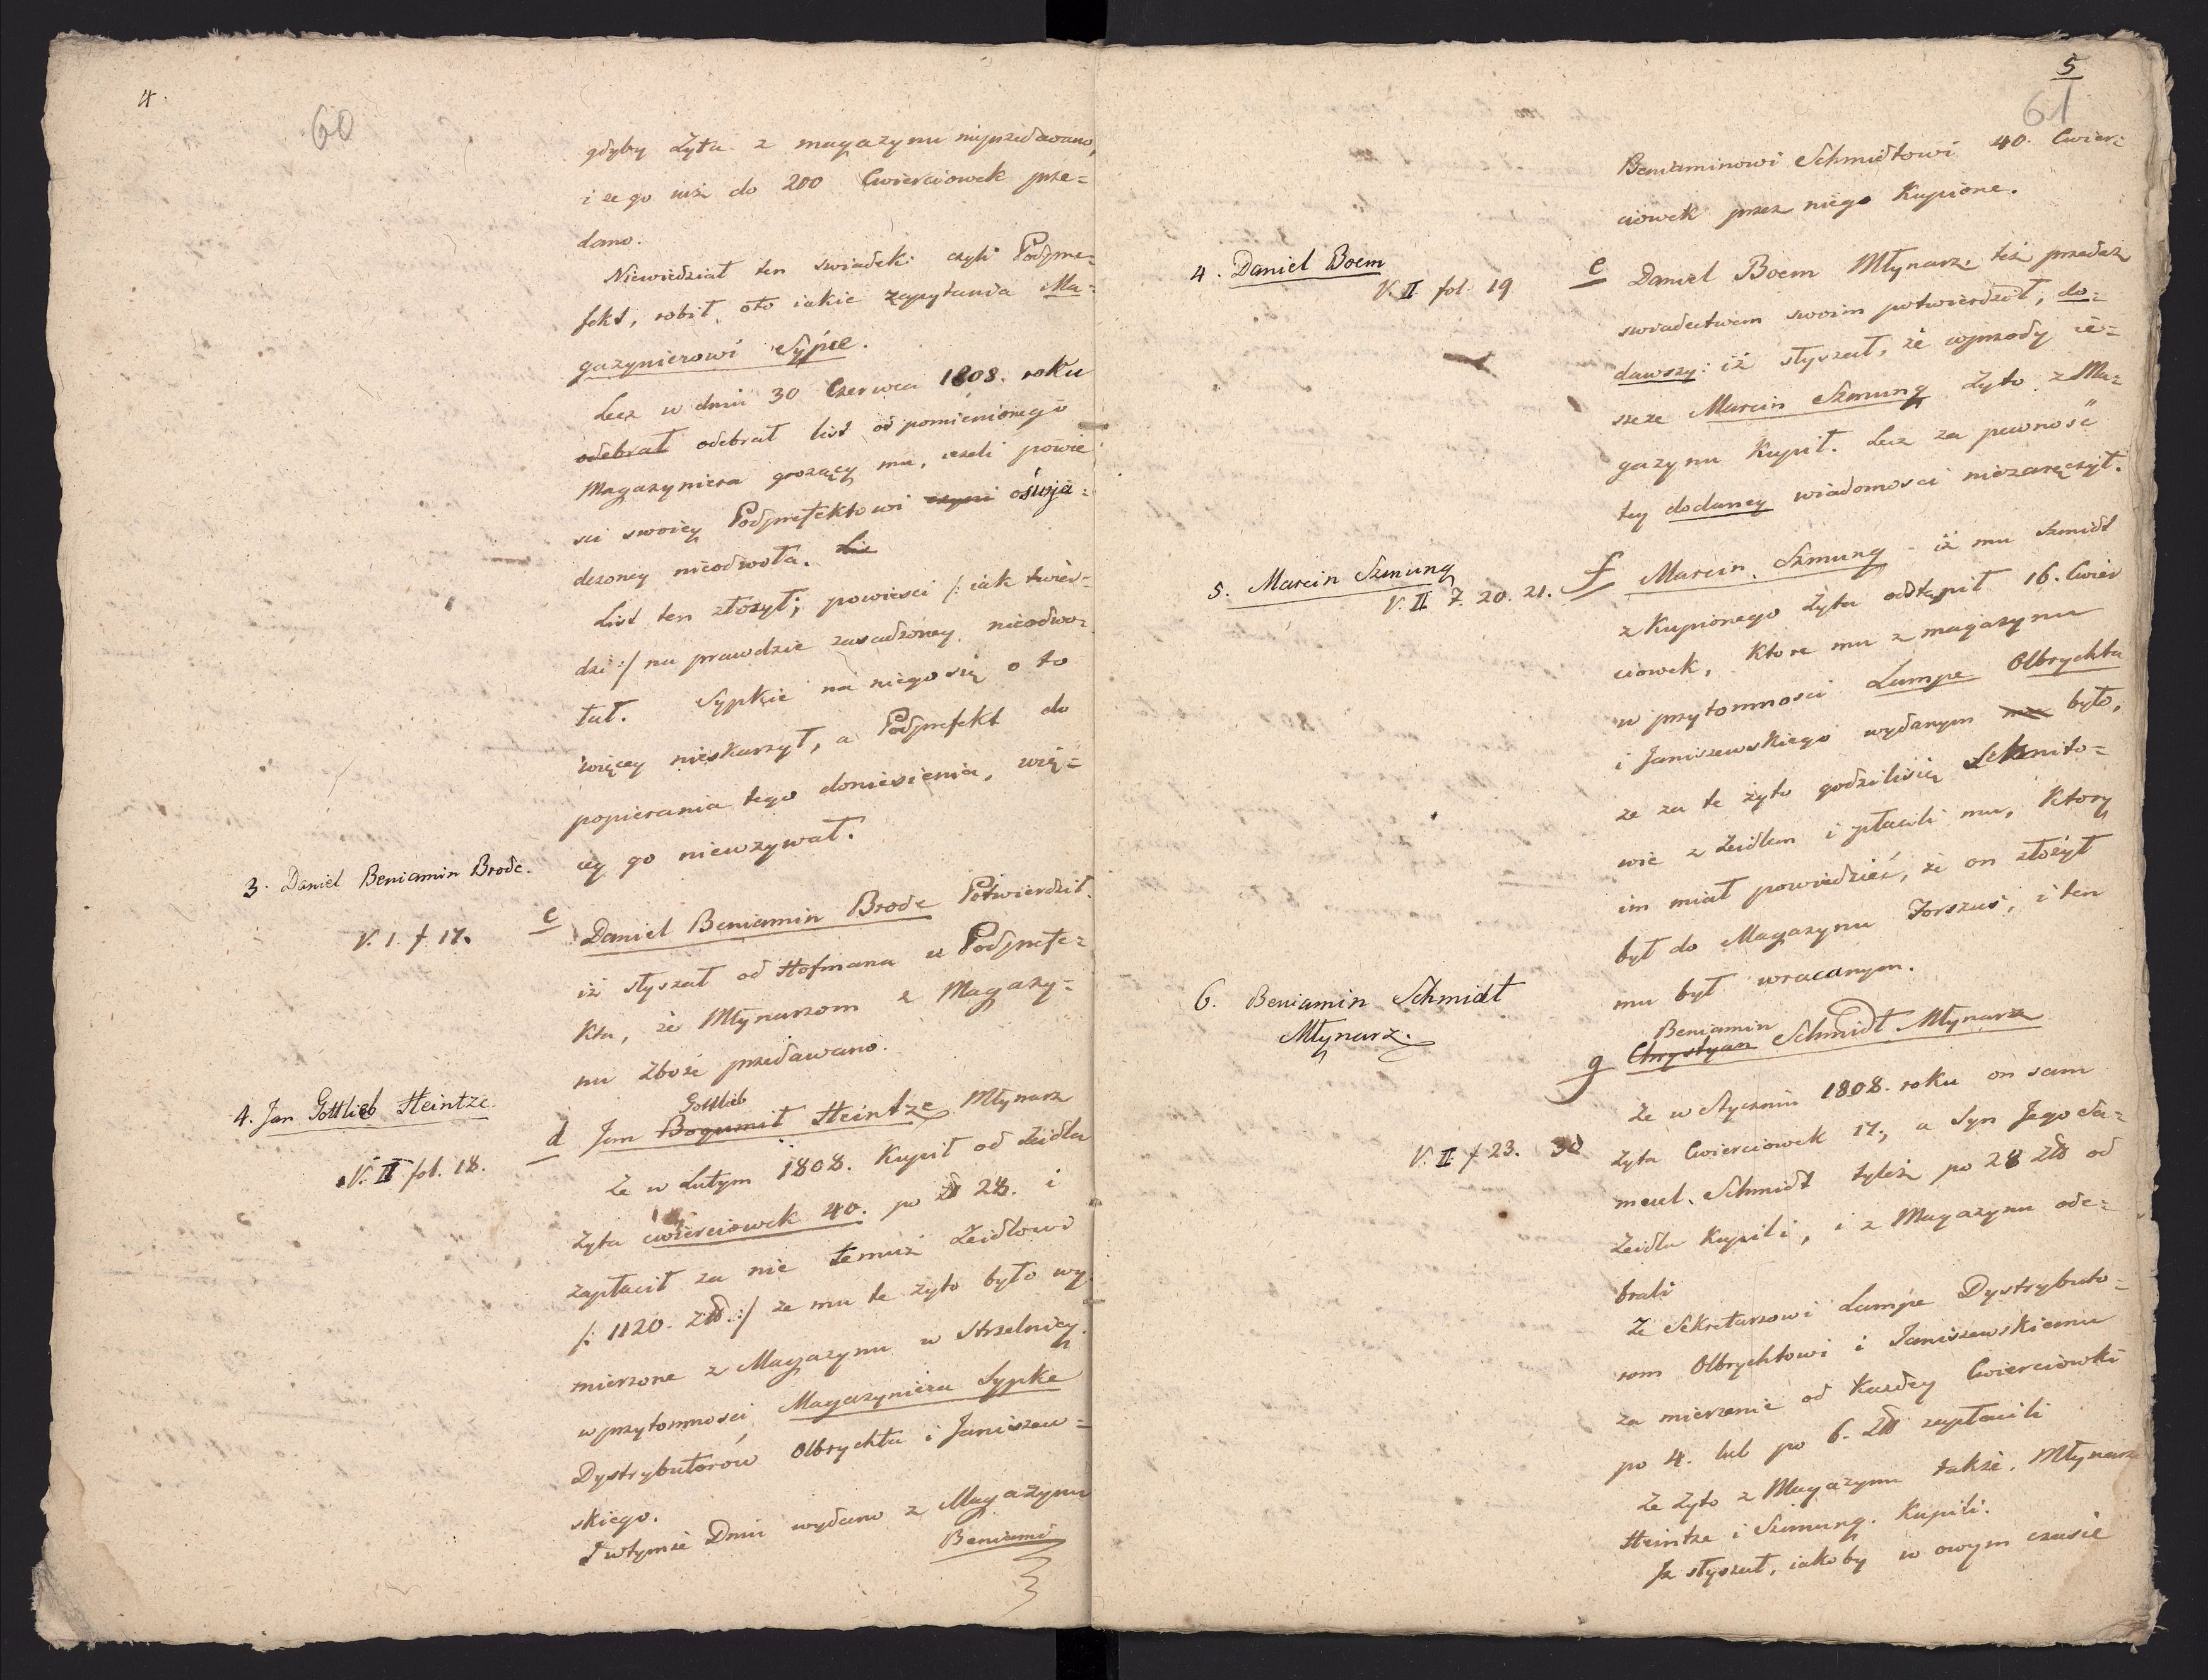 4.
60
gdyby Żyta z magazynu nieprzedawano,
i ze go iuż do 200 Cwierciowek prze=
dano.
Niewiedział ten swiadek czyli Podpre=
fekt, robił oto iakie zapytania Ma=
gazynierowi Sypce.
Lecz w dniu 30 Czerwca 1808. roku
odebrał odebrał list od pomienionego
Magazyniera grozący mu, iezeli powie
sci swoiey Podprefektowi oswia=
dczoney nieodwoła. Lis
List ten złożył; powiesci /: iak twier=
dzi :/ na prawdzie zasadzoney nieodwo=
łał. Sypkie na niego się o to
więcey nieskarzył, a Podprefekt do
popierania tego doniesienia, wię=
cey go niewzywał.
3. Daniel Beniamin Brode.
V. 1. f 17.
c Daniel Beniamin Brode Potwierdził
iż słyszał od Hofmana u Podprefe=
kta, że Młynarzom z Magazy=
nu Zboże przedawano.
4. Jan Gottlieb Heintze.
V. II fol. 18.
Gottlieb
d Jan Bogumił Heintze Młynarz
Ze w Lutym 1808. Kupił od Zeidla
Żyta cwierciowek 40. po zł 28. i
zapłacił za nie temuż Zeidlowi
/: 1120. Złł. :/ ze mu te żyto było wy
mierzone z Magazynu w Strzelnicy
w przytomnosci, Magazyniera Sypke
Dystrybutorów Olbrychta i Janiszew=
skiego.
I wtymże Dniu wydano z Magazynu
Beniami
5
61
Beniaminowi Schmidtowi 40. Cwier=
ciowek przez niego Kupione.
4. Daniel Boem
V. II fol. 19
e Daniel Boem Młynarz też przedaż
swiadectwem swoim potwierdził, do=
dawszy: iż słyszał, że wprzody ie=
szcze Marcin Szmung Żyto z Ma=
gazynu Kupił. Lecz za pewność
tey dodaney wiadomosci niezaręczył.
5. Marcin Szmung
V. II f. 20. 21.
f Marcin Szmung - iż mu Szmidt
z Kupionego Żyta odstąpił 16. Cwier
ciowek, Ktore mu z magazynu
w przytomnosci Lampe Olbrychta
i Janiszewskiego wydanym było,
ze za te żyto godzili się Schmito=
wie z Zeidlem i płacili mu, Ktory
im miał powiedzieć, że on złożył
był do Magazynu Forszus, i ten
mu był wracanym.
6. Beniamin Schmidt
Młynarz.
Beniamin
g Chrystyan Schmidt Młynarz
Ze w Styczniu 1808. roku on sam
V. II f 23. 30
Żyta Cwierciowek 17, a Syn Jego Sa=
muel Schmidt tyleż po 28 Złł od
Zeidla Kupili, i z Magazynu ode=
brali
Ze Sekretarzowi Lampe Dystrybuto=
rom Olbrychtowi i Janiszewskiemu
za mierzenie od Kazdey Cwierciowki
po 4. lub po 6. Złł zapłacili
Ze Żyto z Magazynu także, Młynarz
Heintze i Szmung. Kupili.
Iz słyszał, iakoby w owym czasie